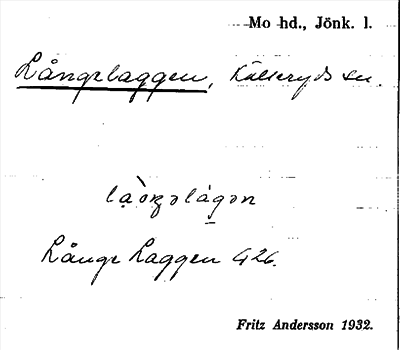 Mo hd., Jönk. l.
Långelaggen, Källeryds sn.
Långe Laggen 426.
Fritz Andersson 1932.